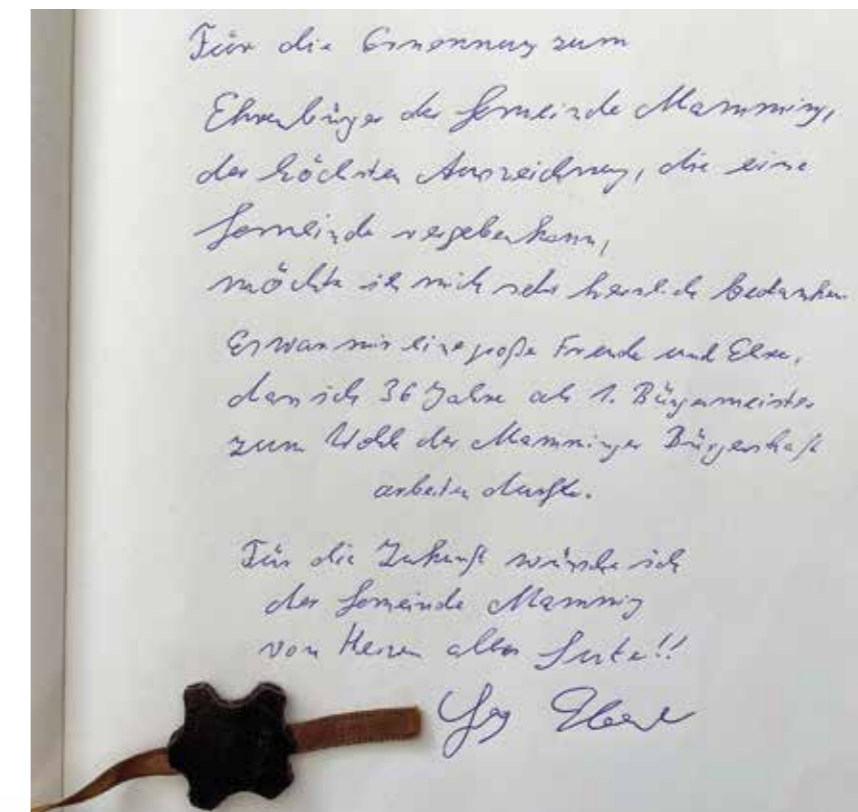 Für die Ernennung zum
Ehrenbürger der Gemeinde Mamming,
der höchsten Auszeichnung, die eine
Gemeinde vergeben kann,
möchte ich mich sehr herzlich bedanken.
Es war mir eine große Freude und Ehre,
dass ich 36 Jahre als 1. Bürgermeister
zum Wohle der Mamminger Bürgerschaft
arbeiten durfte.
Für die Zukunft wünsche ich
der Gemeinde Mamming
von Herzen alles Gute!!
Eberl